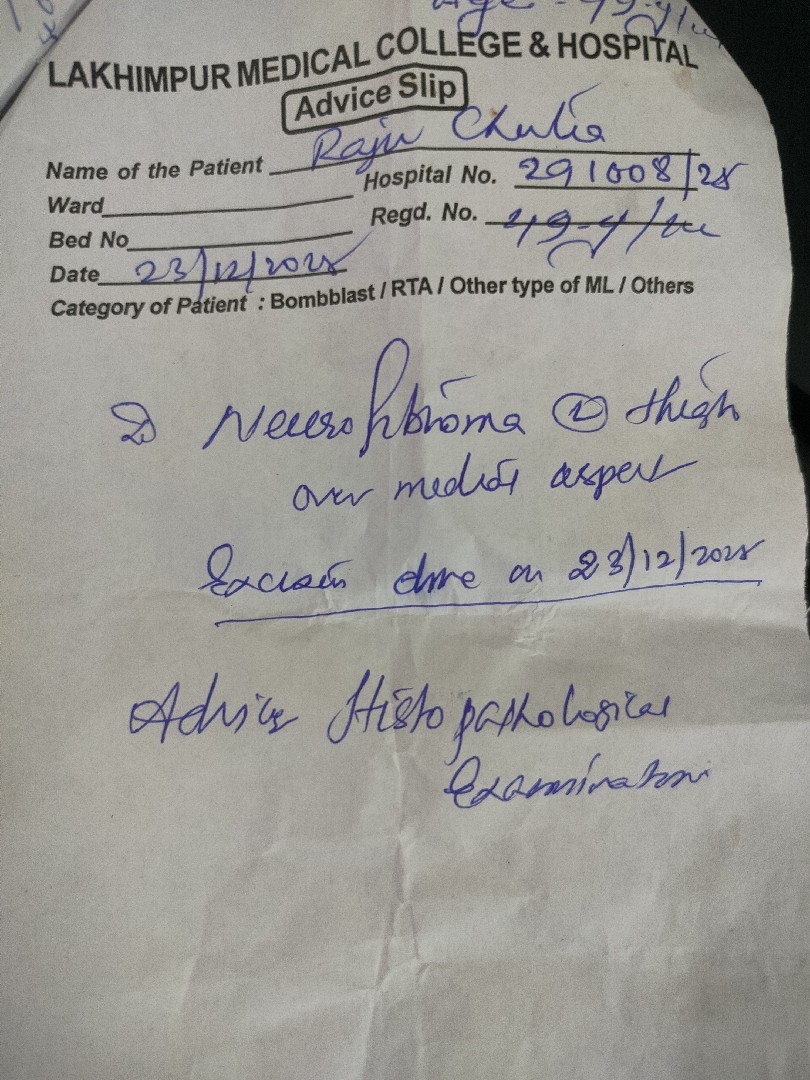 Age - 49-y/m
LAKHIMPUR MEDICAL COLLEGE & HOSPITAL
Advice Slip
Name of the Patient Raju Chutia
Hospital No. 291008/25
Ward
Regd. No. 49-y/m
Bed No
Date 23/12/2025
Category of Patient : Bombblast / RTA / Other type of ML / Others
Neurofibroma thigh
over medial aspect
Excision done on 23/12/2025
Advice Histopathological
Examination